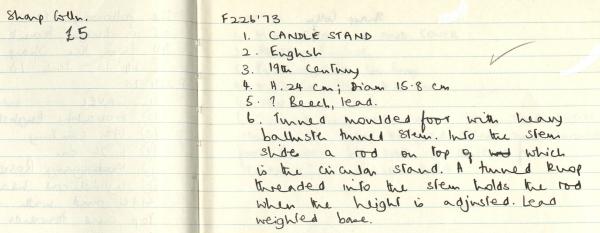 Sharp Colln.
£5
F226'73
1. CANDLE STAND
2. English
3. 19th Century
4. H. 24 cm; Diam 15.8 cm
5. ? Beech, lead.
6. Turned moulded foot with heavy
balluster turned stem. Into the stem
slides a rod on top of which
is the circular stand. A turned knop
threaded into the stem holds the rod
when the height is adjusted. Lead
weighted base.